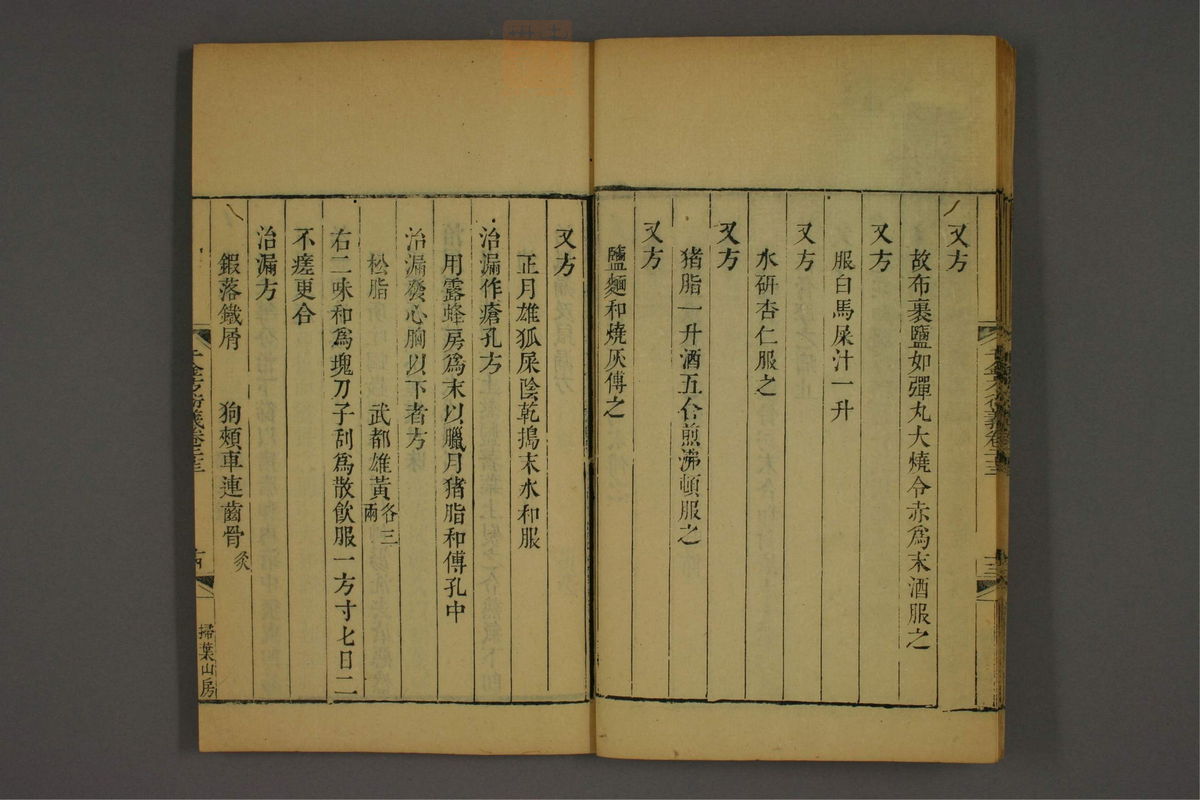 又方
故布裹鹽如彈丸大燒令赤為末酒服之
又方
服白馬屎汁一升
又方
水研杏仁服之
又方
猪脂一升酒五合煎沸頓服之
又方
鹽麵和燒灰傅之
又方
正月雄狐屎陰乾搗末水和服
治漏作瘡孔方
用露蜂房為末以臘月猪脂和傅孔中
治漏發心胸以下者方
松脂 武都雄黃各三兩
右二味和為塊刀子刮為散飲服一方寸七日二
不瘥更合
治漏方
鍜落鐵屑 狗頰車連齒骨炙
千金方衍義卷二十三
十四
掃葉山房